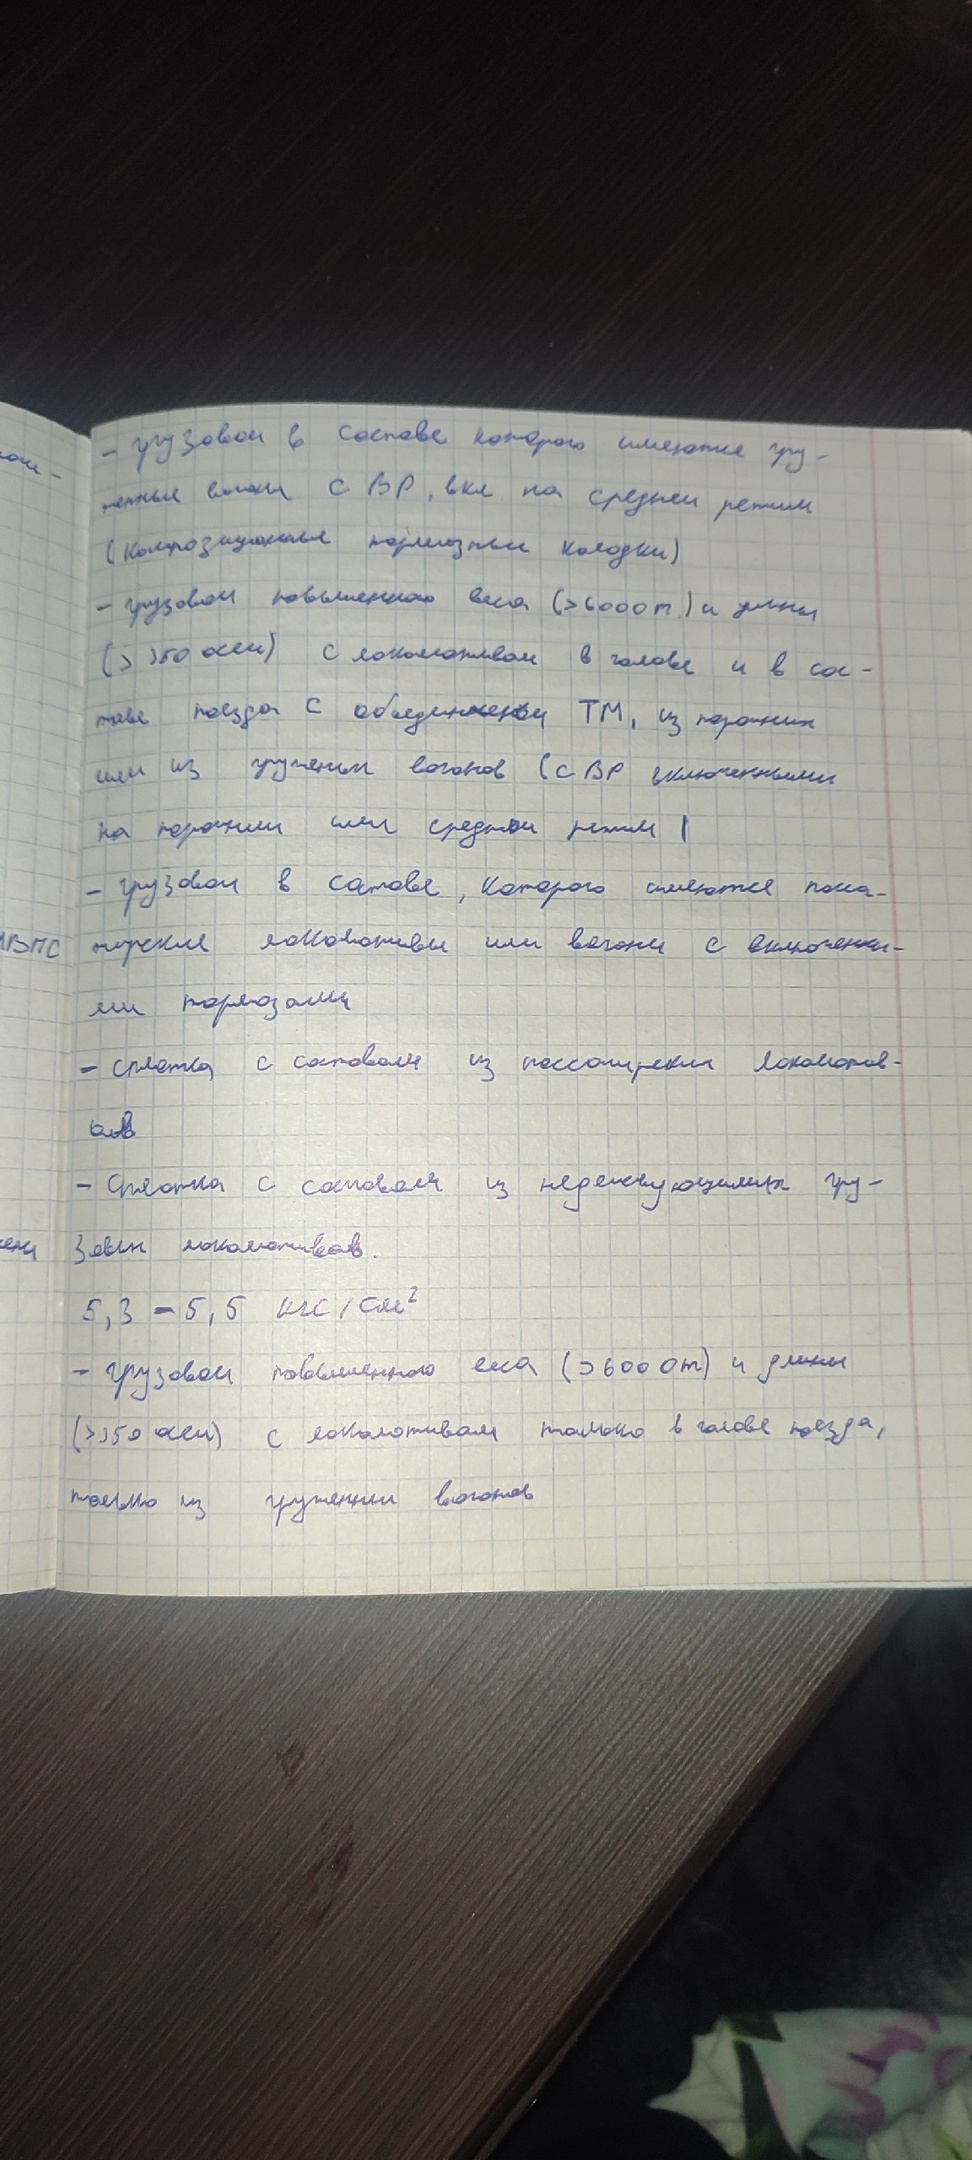 - грузовой в составе которого имеются гру-
женные вагоны с ВР, вкл на средней режим
(Композиционные тормозные колодки)
- грузовой повышенного веса (>6000т.) и длины
(> 350 осей) с локомотивом в голове и в сос-
таве поезда с объединеной ТМ, из порожних
или из груженых вагонов (с ВР включенными
на порожний или средний режим)
- грузовой в сотаве, которого имеются пасса-
жирские локомотивы или вагоны с включенны-
ми тормозами
- сплотка с сотавом из пассажирских локомотив-
ов
- Сплотка с составом из недействующих гру-
зовых локомотивов.
5,3 - 5,5 кгс/см²
- грузовой повышенного веса (>6000т) и длины
(>350 осей) с локомотивом только в голове поезда,
только из груженных вагонов